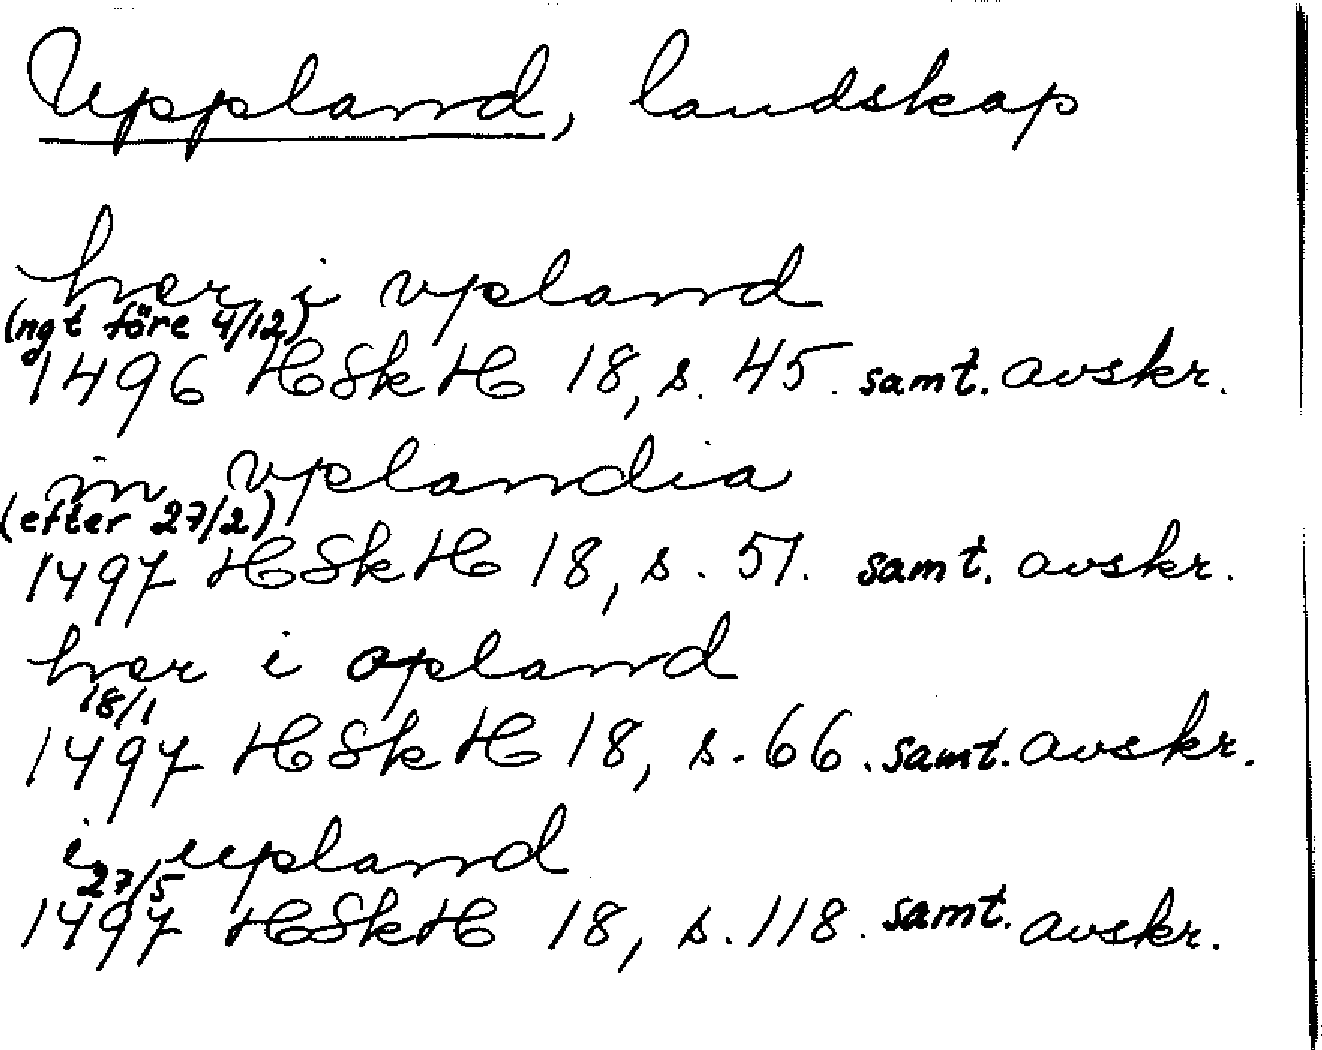 Uppland, landskap
her i vpland
(ngt före 4/12)
1496 HSkH 18, s. 45. samt. avskr.
in vplandia
(efter 27/2)
1497 HSkH 18, s. 51. samt. avskr.
her i opland
18/1
1497 HSkH 18, s. 66. samt. avskr.
i upland
27/5
1497 HSkH 18, s. 118. samt. avskr.